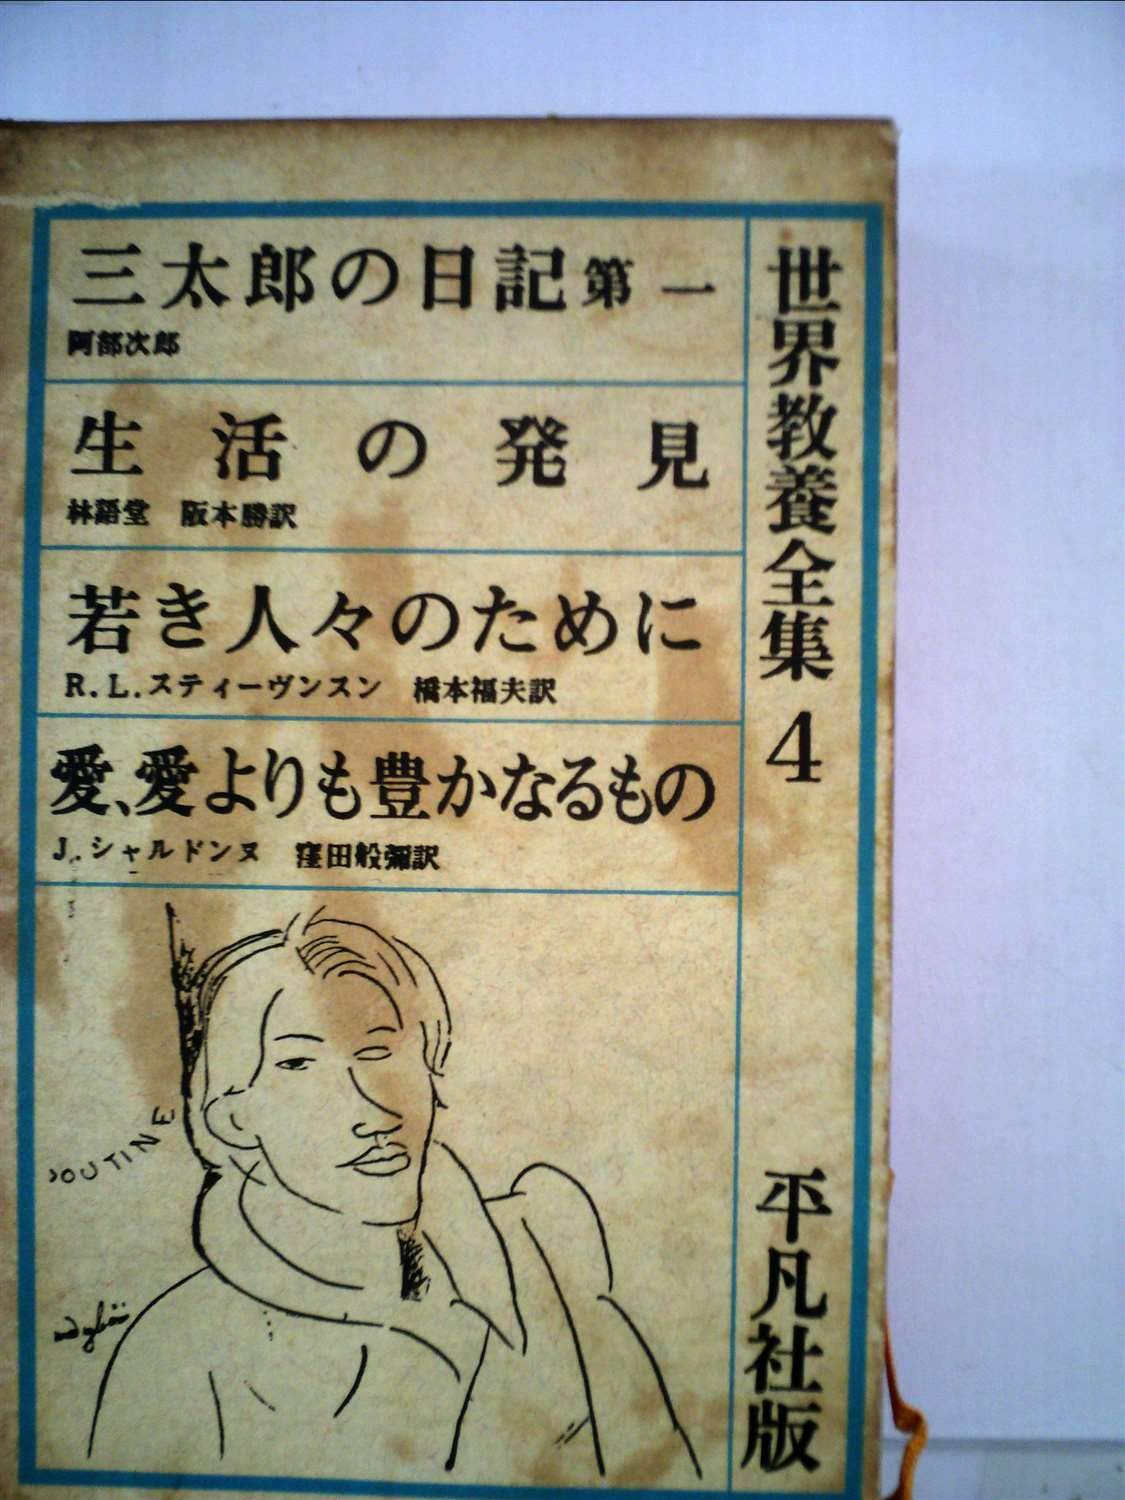 世界教養全集 4
平凡社版
三太郎の日記 第一
阿部次郎
生活の発見
林語堂 阪本勝訳
若き人々のために
R.L.スティーヴンスン 橋本福夫訳
愛、愛よりも豊かなるもの
J.シャルドンヌ 窪田般彌訳